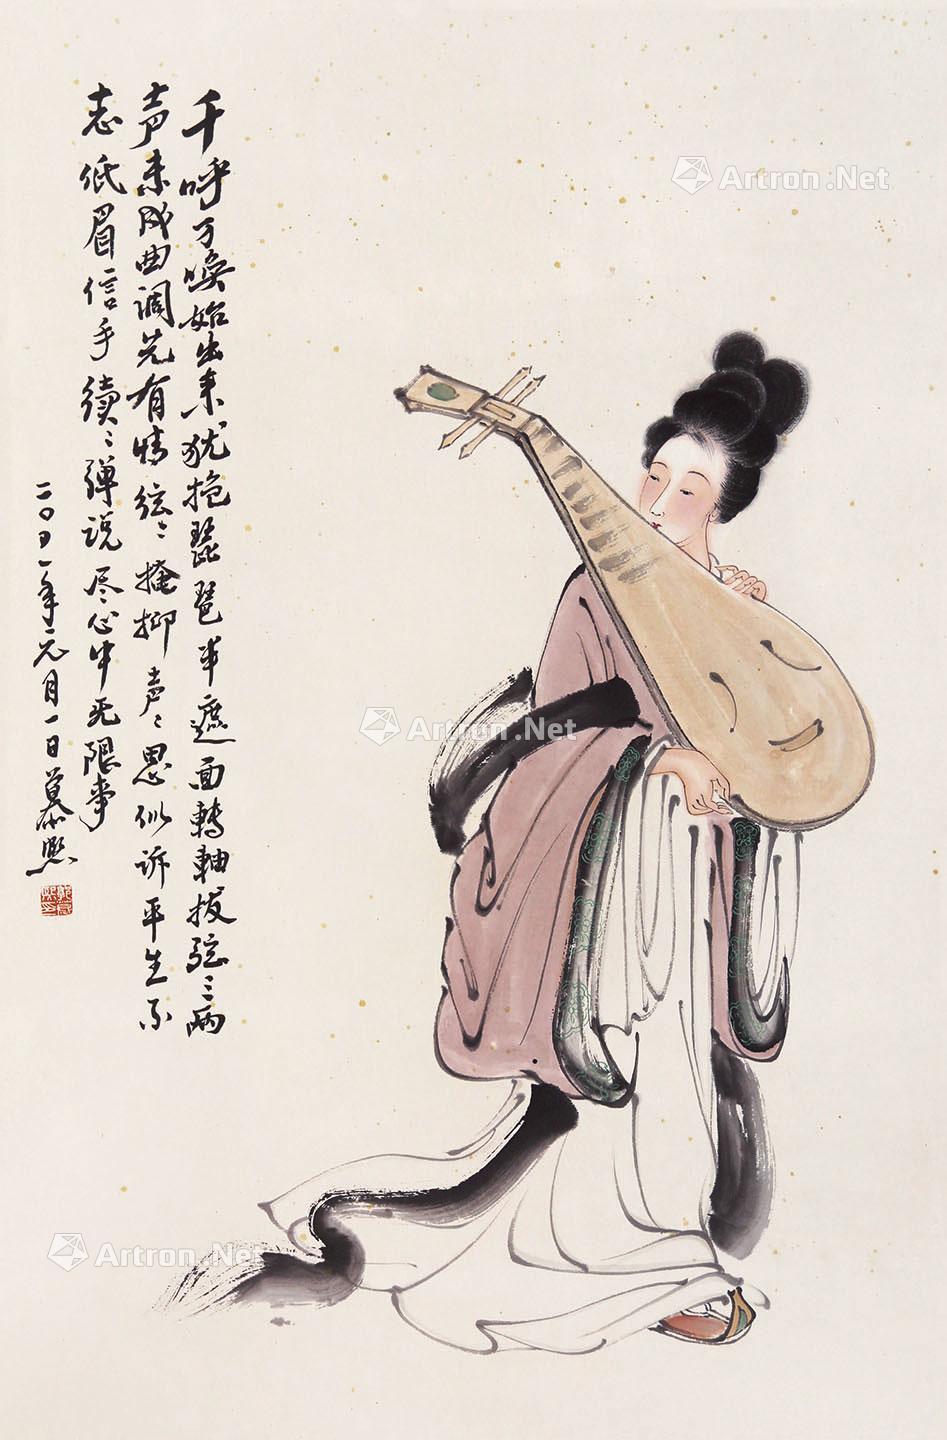 千呼万唤始出来犹抱琵琶半遮面轉軸拨弦三两
声未成曲调先有情弦〻掩抑声〻思似诉平生不
志低眉信手續〻弹说尽心中无限事
二〇〇一年元月一日慕熙
Artron.Net
Artron.Net
Artron.Net